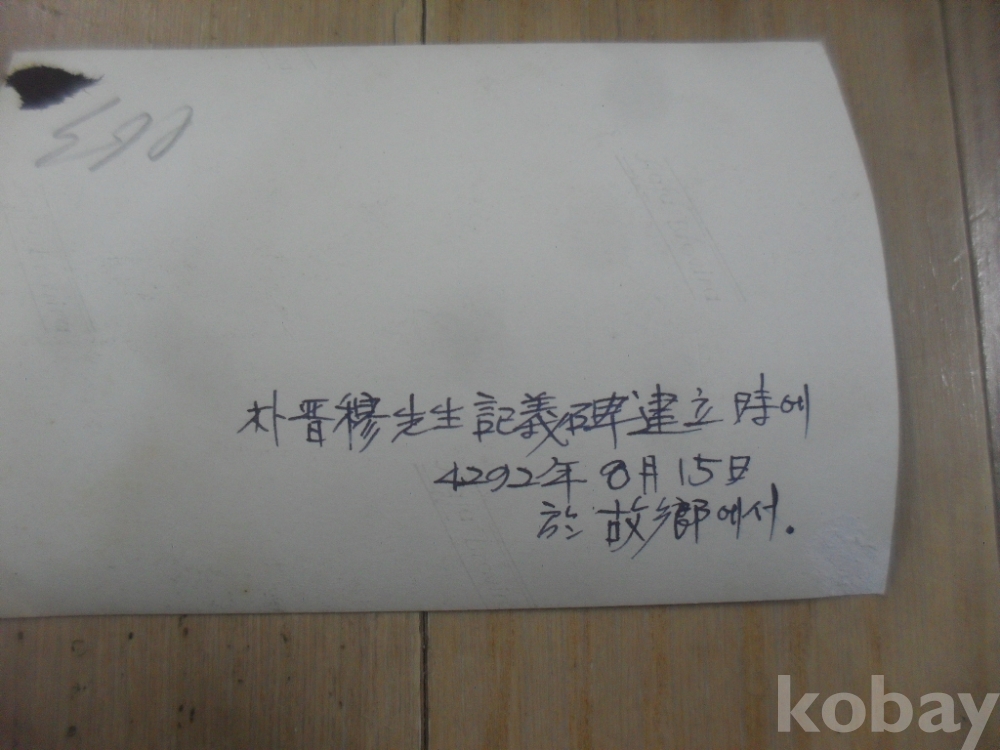 朴晋穆先生記義碑建立時에
4292年 8月 15日
於 故鄕에서.
kobay